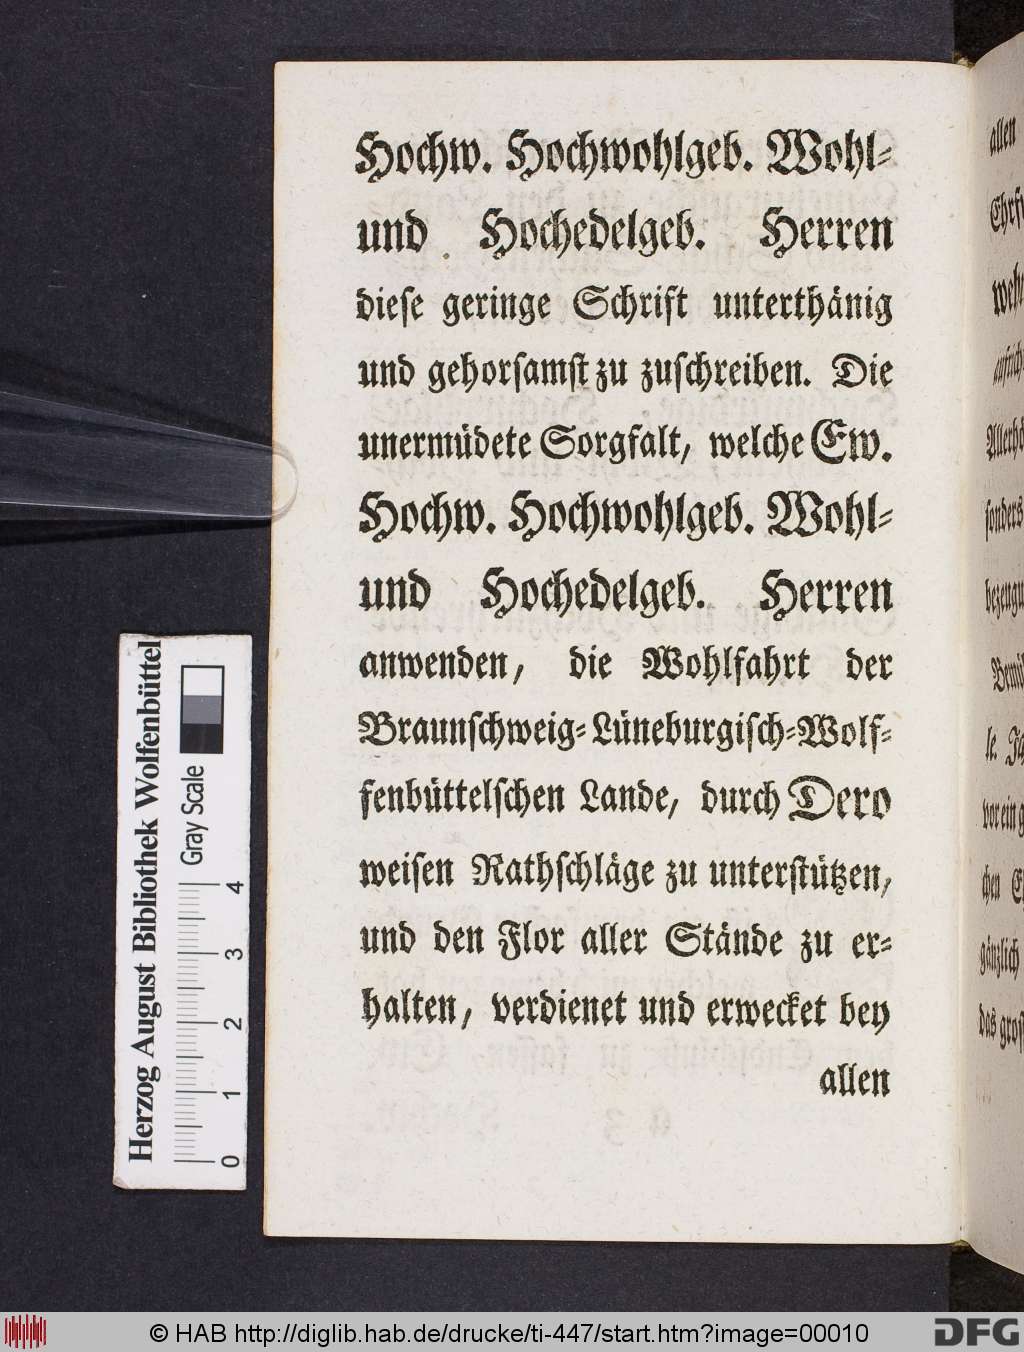 Hochw. Hochwohlgeb. Wohl-
und Hochedelgeb. Herren
diese geringe Schrift unterthänig
und gehorsamst zu zuschreiben. Die
unermüdete Sorgfalt, welche Ew.
Hochw. Hochwohlgeb. Wohl-
und Hochedelgeb. Herren
anwenden, die Wohlfahrt der
Braunschweig-Lüneburgisch-Wolf-
fenbüttelschen Lande, durch Dero
weisen Rathschläge zu unterstützen,
und den Flor aller Stände zu er-
halten, verdienet und erwecket bey
allen
allen
sonders
gänzlich
Herzog August Bibliothek Wolfenbüttel
Gray Scale
0 1 2 3 4
© HAB http://diglib.hab.de/drucke/ti-447/start.htm?image=00010
DFG